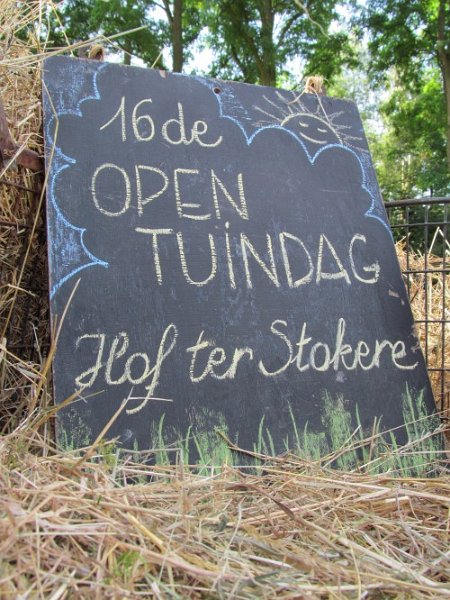 16de
OPEN
TUINDAG
Hof ter Stokere